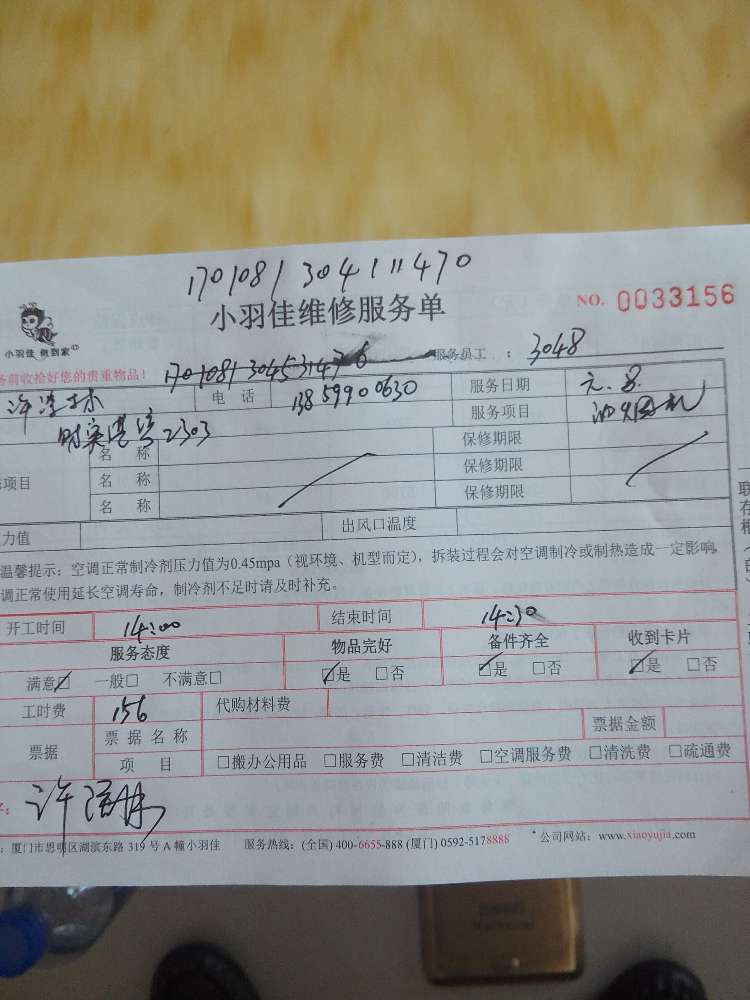 1701081304111470
小羽佳维修服务单 NO. 0033156
小羽佳 俐到家
务前收拾好您的贵重物品! 服务员工 : 3048
电 话 13859900630 服务日期 元.8.
2303 服务项目 油烟机
名 称 保修期限
项目 名 称 保修期限
名 称 保修期限
力值 出风口温度
温馨提示:空调正常制冷剂压力值为0.45mpa(视环境、机型而定),拆装过程会对空调制冷或制热造成一定影响,
调正常使用延长空调寿命,制冷剂不足时请及时补充。
开工时间 14:00 结束时间 14:30
服务态度 物品完好 备件齐全 收到卡片
满意☑ 一般□ 不满意□ ☑是 □否 ☑是 □否 ☑是 □否
工时费 156 代购材料费
票据 票 据 名 称 票据金额
项 目 □搬办公用品 □服务费 □清洁费 □空调服务费 □清洗费 □疏通费
:厦门市思明区湖滨东路 319 号 A 幢小羽佳 服务热线:(全国) 400-6655-888 (厦门) 0592-5178888 *公司网站:www.xiaoyujia.com